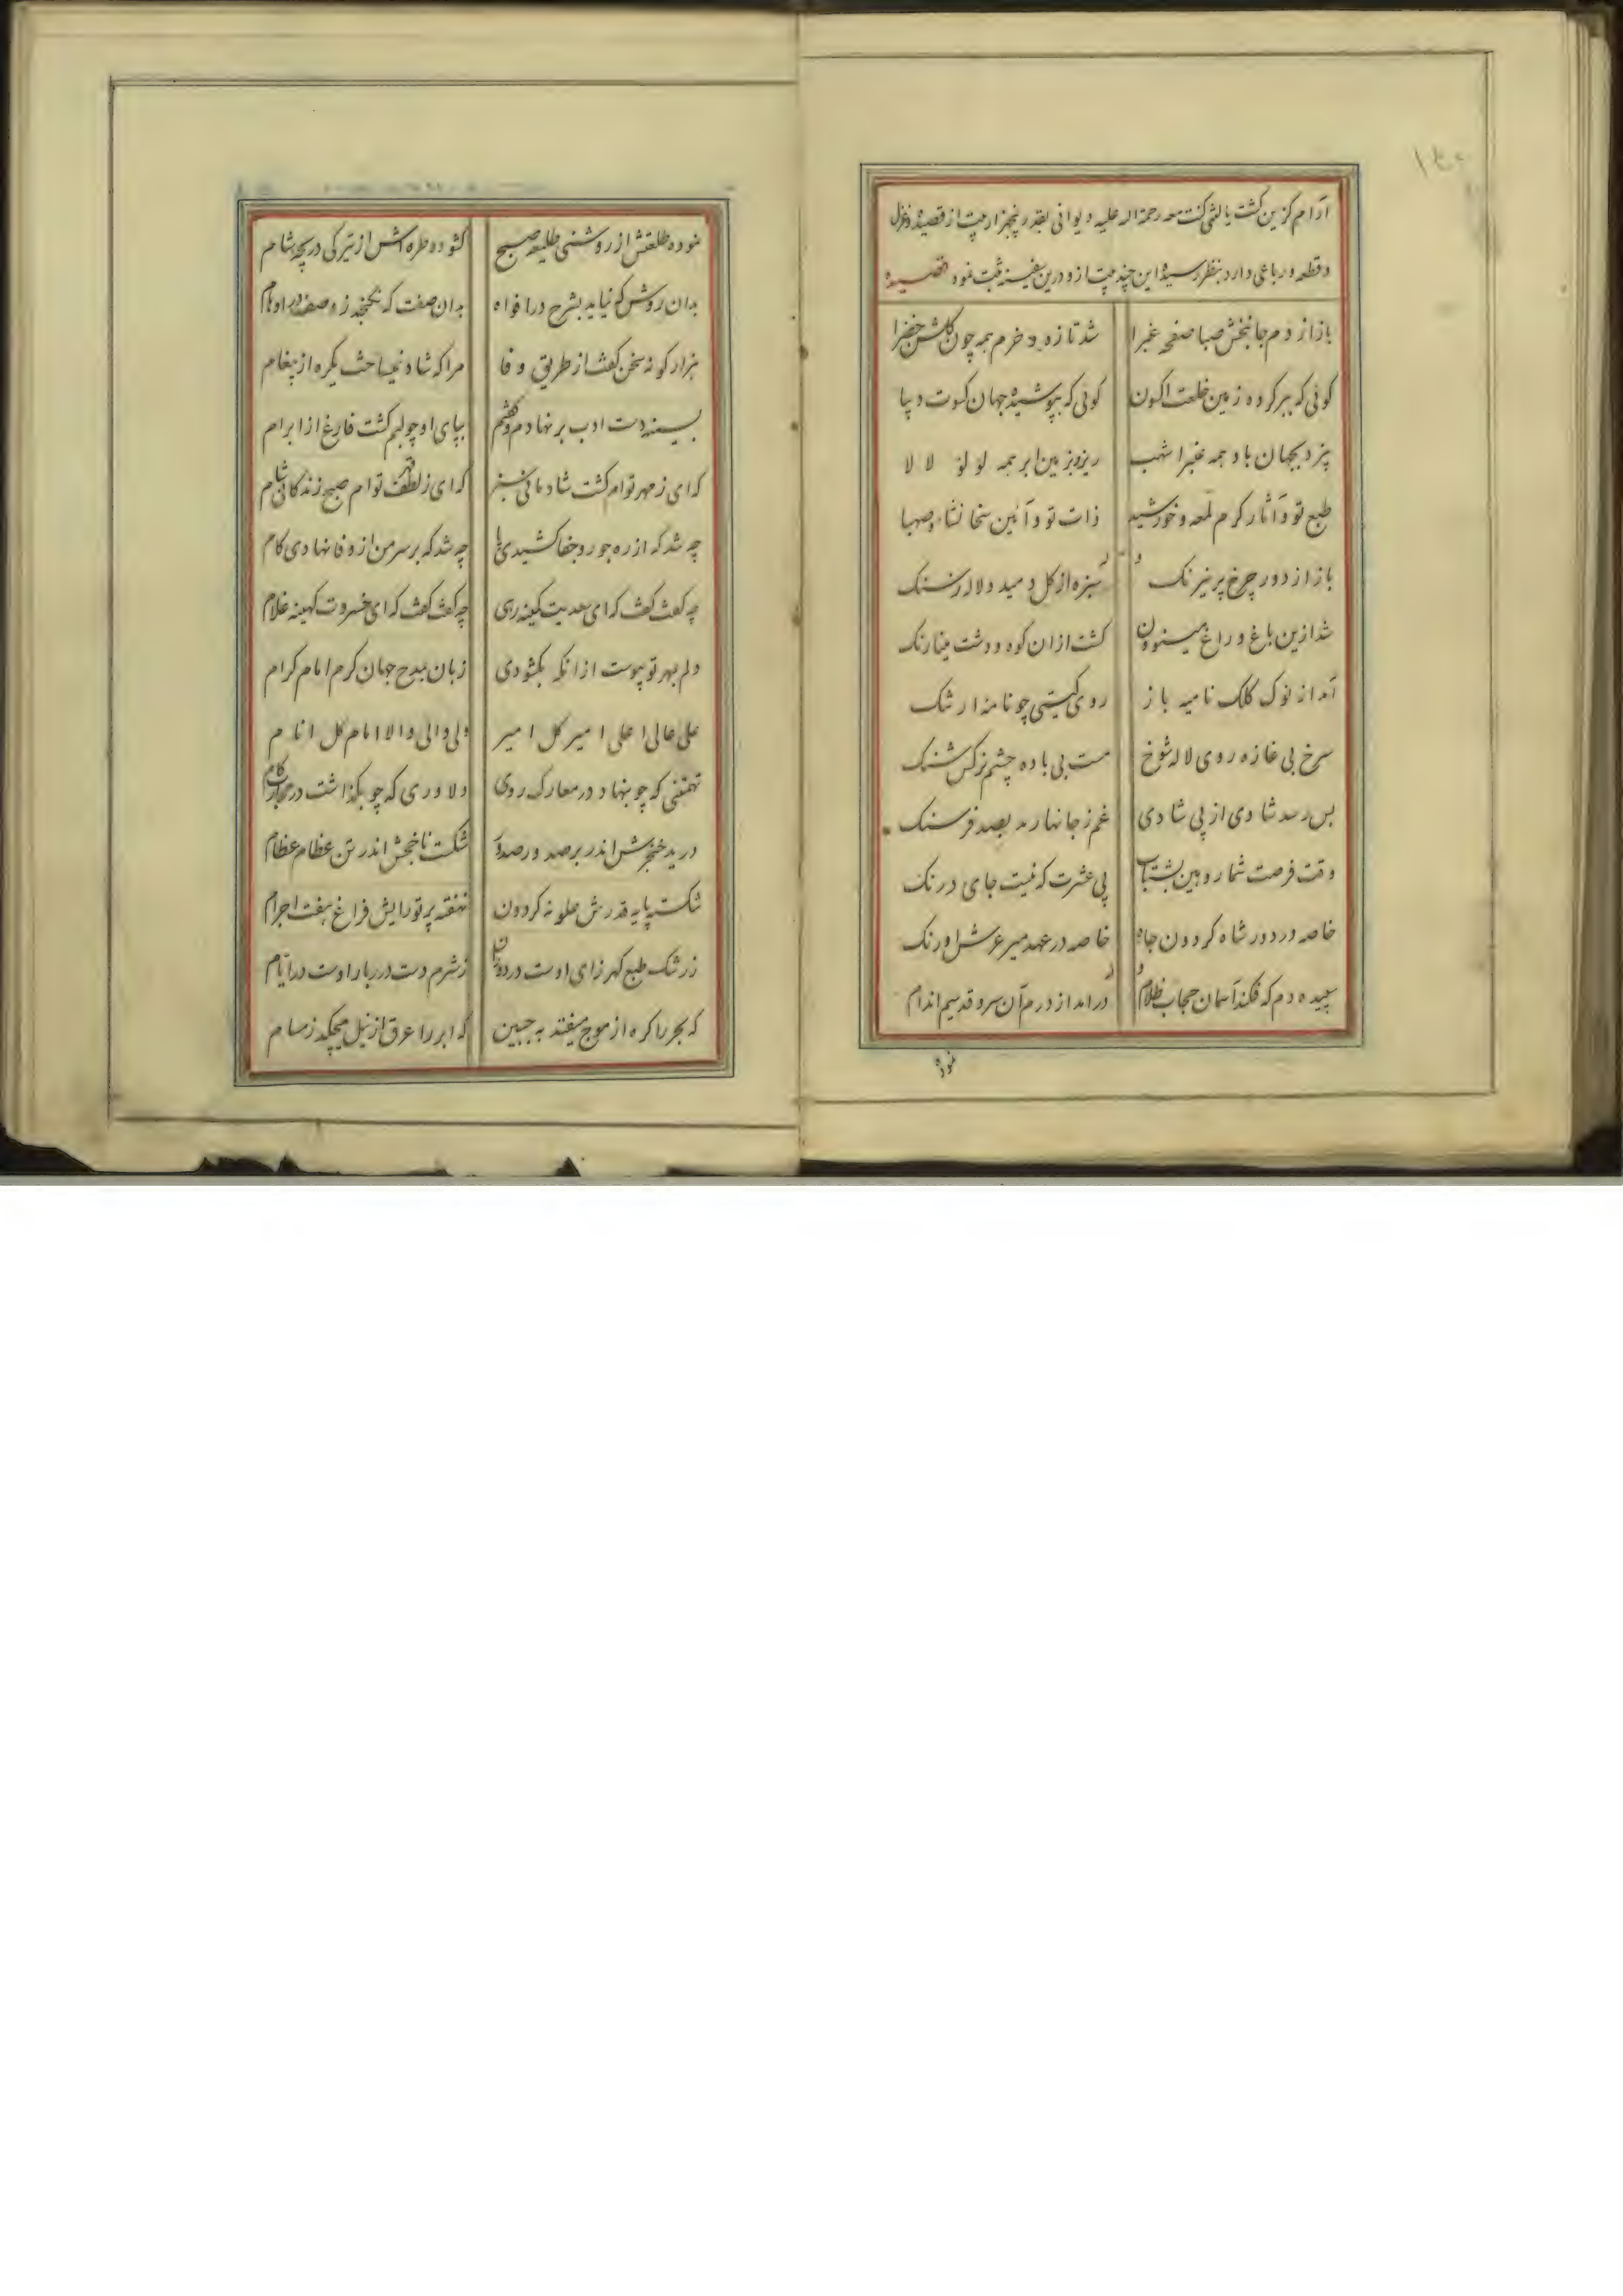 آرام گزین گشت یا لیثی کنت معه رحمة اله علیه دیوانی بقدر پنجهزار بیت از قصیده و غزل
و قطعه و رباعی دارد بنظر رسیده این چند بیت ازو درین سفینه ثبت نمود قصیده
باز از دم جانبخش صبا صفحه غبرا شد تازه و خرم همه چون گلشن خضرا
گوئی که ببر کرده زمین خلعت اکسون گوئی که بپوشیده جهان کسوت دیبا
بیزد بجهان باد همه عنبر اشهب ریزد بزمین ابر همه لولو لالا
طبع تو و آثار کرم لمعه و خورشید ذات تو و آئین سخا نشاء و صهبا
باز از دور چرخ پر نیرنگ سبزه از گل دمید و لاله ز سنگ
شد ازین باغ و راغ مینو وون گشت ازان کوه و دشت مینارنگ
آمد از نوک کلک نامیه باز روی گیتی چو نامه ارژنگ
سرخ بی غازه روی لاله شوخ مست بی باده چشم نرگس شنگ
بس رسد شادی از پی شادی غم ز جانها رمد بصد فرسنگ
وقت فرصت شمار و هین بشتاب پی عشرت که نیست جای درنگ
خاصه در دور شاه گردون جاه خاصه در عهد میر عرش اورنگ
سپیده دم که فکند آسمان حجاب ظلام در امد از درم آن سرو قد سیم اندام
نموده
نموده طلعتش از روشنی طلیعه صبح گشوده طره اش از تیرگی دریچه شام
بدان روش که نیاید بشرح در افواه بدان صفت که نگنجد ز وصف در اوهام
هزار گونه سخن گفت از طریق وفا مرا که شاد نمیساخت یکره از پیغام
بسینه دست ادب بر نهادم و گفتم بپای او چو لبم گشت فارغ از ابرام
که ای ز مهر توام کشت شادمانی سبز که ای ز لطف توام صبح زندگانی شام
چه شد که از ره جور و جفا کشیدی پا چه شد که بر سر من از وفا نهادی گام
چه گفت گفت که ای سعدیت کمینه رهی چه گفت گفت که ای خسروت کهینه غلام
دلم بمهر تو پیوست ازانکه بگشودی زبان بمدح جهان کرم امام کرام
علی عالی اعلی امیر کل امیر ولی والی والا امام کل انام
تهمتنی که چو بنهاد در معارک روی دلاوری که چو بگذاشت در مجازر گام
درید خنجرش اندر بر صدور صدور شکست ناخجش اندر تن عظام عظام
شکسته پایه قدرش علو نه گردون نهفته پرتو رایش فراغ هفت اجرام
ز رشک طبع گهر زای اوست در دوران ز شرم دست درر بار اوست در ایام
که بحر را گره از موج میفتد به جبین که ابر را عرق از نیل میچکد ز مسام